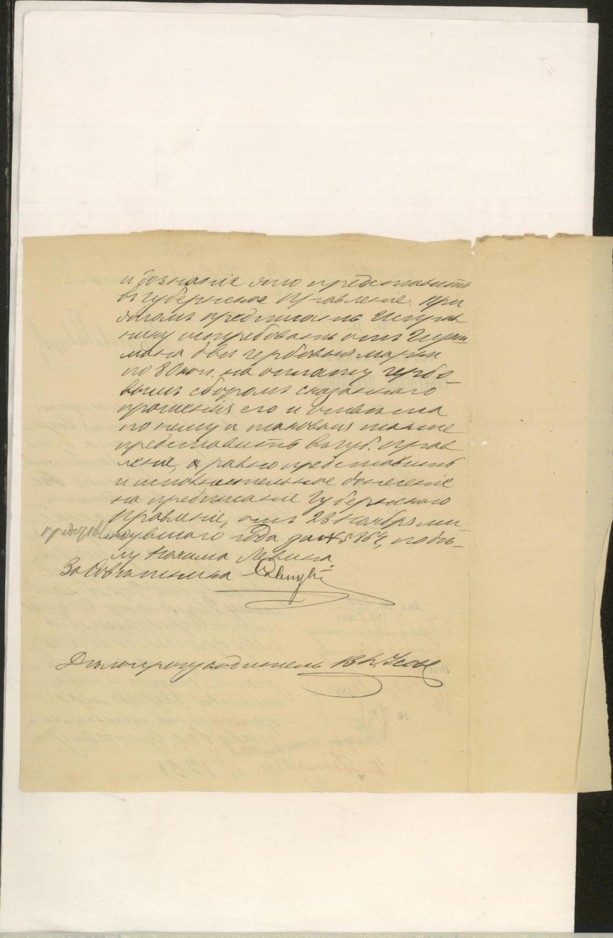 и дознаніе это представить
въ Губернское Правленіе. При
этомъ предписать Исправ
нику истребовать отъ
мана две гербовыя марки
по 80 коп. на оплату гербо-
вымъ сборомъ сказаннаго
прошенія его и ответа
по нему и таковыя также
представить въ Губ. Прав
леніе, а равно представить
и исполнительное донесеніе
на предписаніе Губернскаго
Правленія, отъ 28 Ноября ми-
нувшаго года за № 5867, по де-
лу Нохима Левина
За Советника
Делопроизводитель